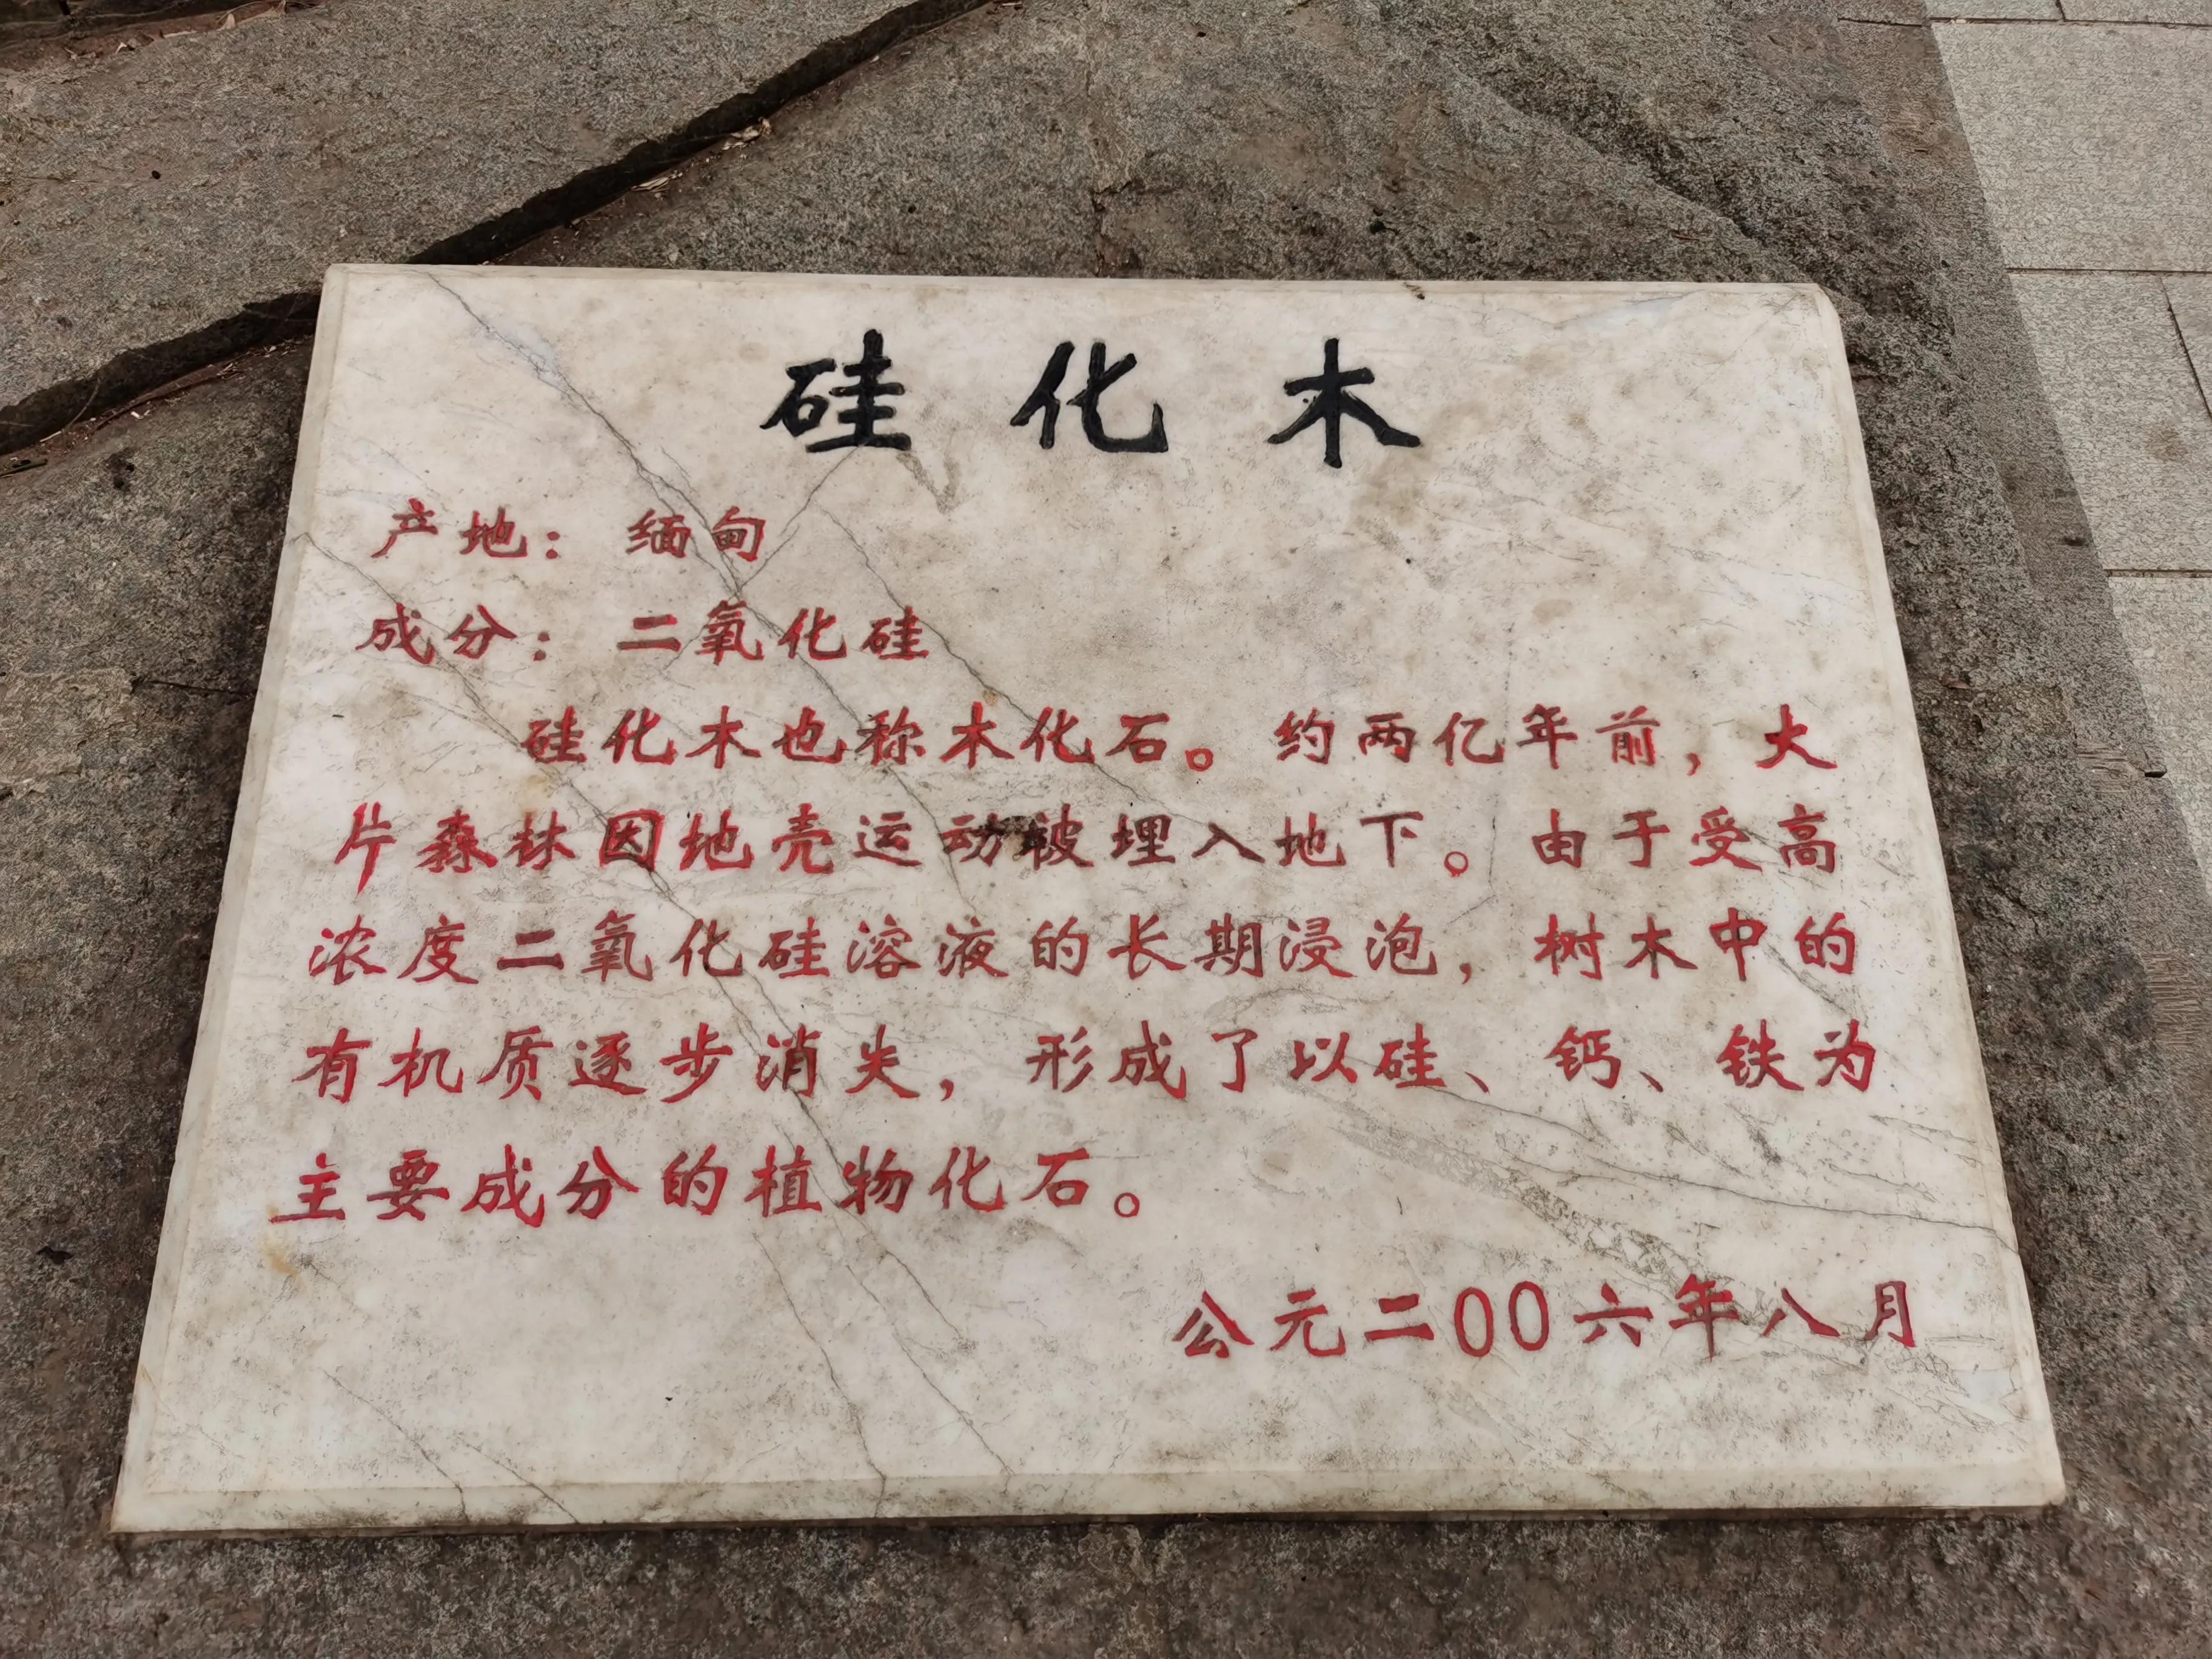 硅化木
产地：缅甸
成分：二氧化硅
硅化木也称木化石。约两亿年前，大
片森林因地壳运动被埋入地下。由于受高
浓度二氧化硅溶液的长期浸泡，树木中的
有机质逐步消失，形成了以硅、钙、铁为
主要成分的植物化石。
公元二00六年八月